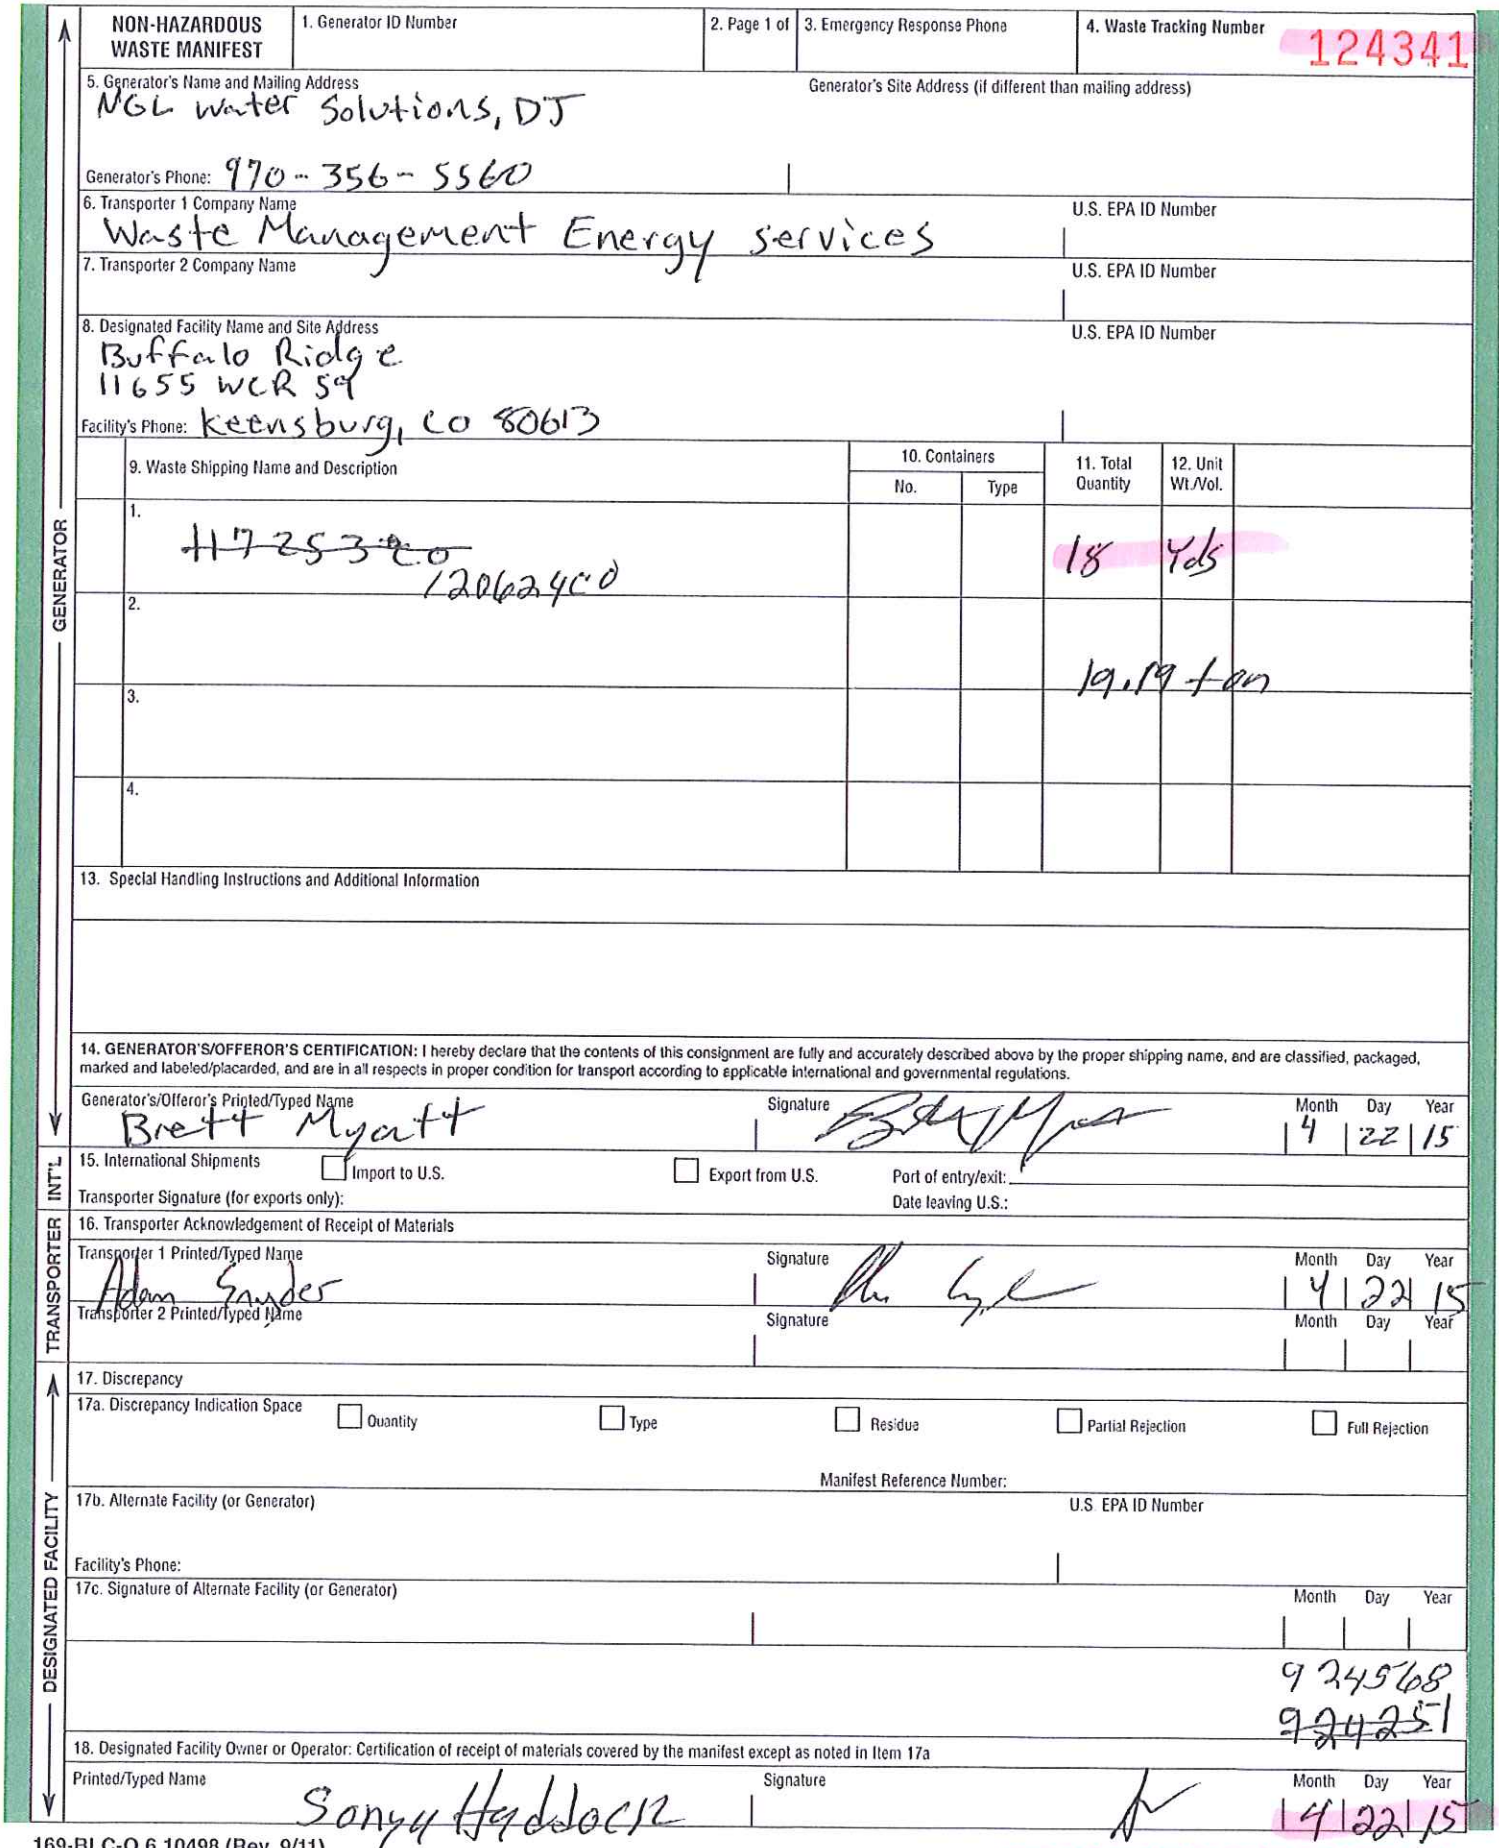 NON-HAZARDOUS WASTE MANIFEST
1. Generator ID Number
2. Page 1 of
3. Emergency Response Phone
4. Waste Tracking Number
124341
5. Generator's Name and Mailing Address
Generator's Site Address (if different than mailing address)
NGL Water Solutions, DJ
Generator's Phone: 970-356-5560
6. Transporter 1 Company Name
U.S. EPA ID Number
Waste Management Energy services
7. Transporter 2 Company Name
U.S. EPA ID Number
8. Designated Facility Name and Site Address
U.S. EPA ID Number
Buffalo Ridge
11655 WCR 59
Facility's Phone: Keensburg, CO 80613
9. Waste Shipping Name and Description
10. Containers
No.
Type
11. Total Quantity
12. Unit Wt./Vol.
1.
117253CO
18 Yds
120624CO
2.
19.19 ton
3.
4.
13. Special Handling Instructions and Additional Information
14. GENERATOR'S/OFFEROR'S CERTIFICATION: I hereby declare that the contents of this consignment are fully and accurately described above by the proper shipping name, and are classified, packaged,
marked and labeled/placarded, and are in all respects in proper condition for transport according to applicable international and governmental regulations.
Generator's/Offeror's Printed/Typed Name
Signature
Month Day Year
Brett Myatt
4 22 15
15. International Shipments
Import to U.S.
Export from U.S.
Port of entry/exit:
Transporter Signature (for exports only):
Date leaving U.S.:
16. Transporter Acknowledgement of Receipt of Materials
Transporter 1 Printed/Typed Name
Signature
Month Day Year
Adam Snyder
4 22 15
Transporter 2 Printed/Typed Name
Signature
Month Day Year
17. Discrepancy
17a. Discrepancy Indication Space
Quantity
Type
Residue
Partial Rejection
Full Rejection
Manifest Reference Number:
17b. Alternate Facility (or Generator)
U.S. EPA ID Number
Facility's Phone:
17c. Signature of Alternate Facility (or Generator)
Month Day Year
924568
924251
18. Designated Facility Owner or Operator: Certification of receipt of materials covered by the manifest except as noted in Item 17a
Printed/Typed Name
Signature
Month Day Year
Sonya Haddock
4 22 15
169-BLC-O 6 10498 (Rev. 9/11)
GENERATOR
INT'L
TRANSPORTER
DESIGNATED FACILITY